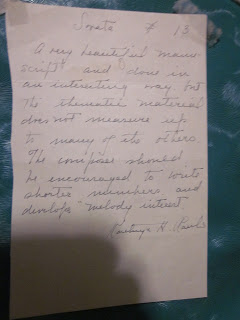 Sonata # 13
A very beautiful manu-
script and done in
an interesting way but
the thematic material
does not measure up
to many of its others.
The compose should
be encouraged to write
shorter numbers and
develop "melody interest
H.